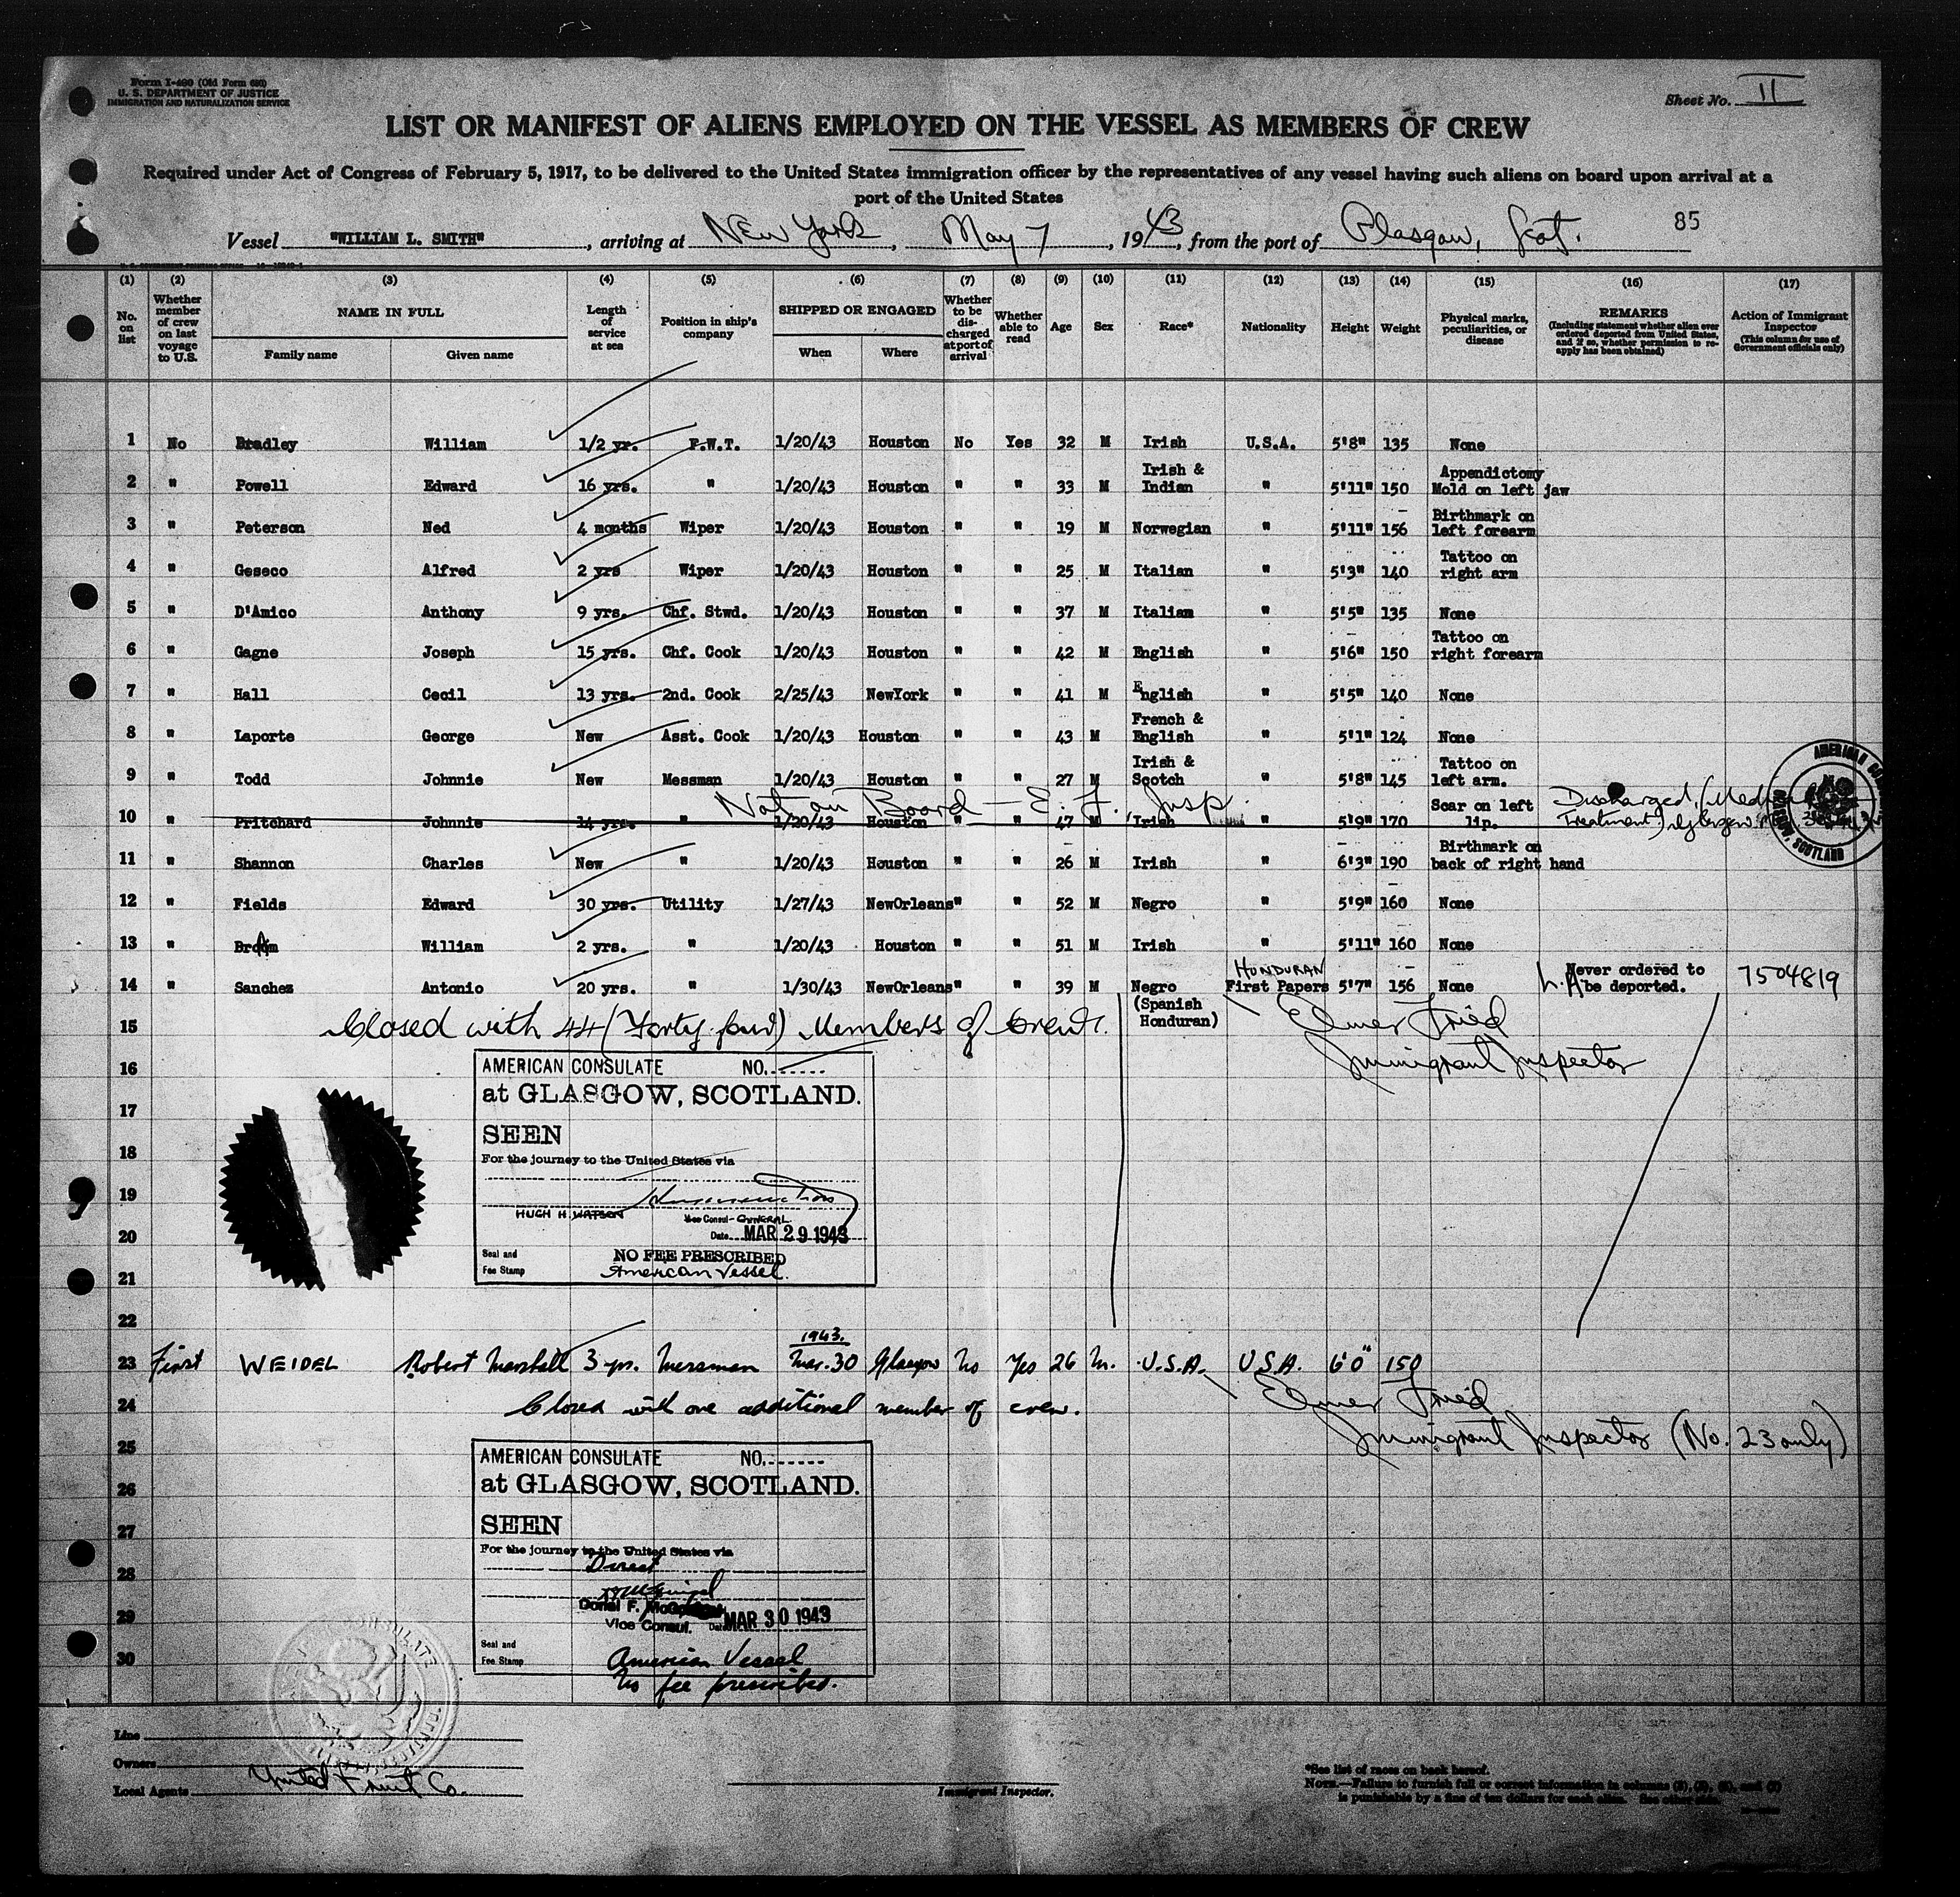 Form I-480 (Old Form 680)
U. S. DEPARTMENT OF JUSTICE
IMMIGRATION AND NATURALIZATION SERVICE
Sheet No. II
LIST OR MANIFEST OF ALIENS EMPLOYED ON THE VESSEL AS MEMBERS OF CREW
Required under Act of Congress of February 5, 1917, to be delivered to the United States immigration officer by the representatives of any vessel having such aliens on board upon arrival at a
port of the United States
85
Vessel "WILLIAM L. SMITH", arriving at New York, May 7, 1943, from the port of Glasgow, Scot.
(1) (2) (3) (4) (5) (6) (7) (8) (9) (10) (11) (12) (13) (14) (15) (16) (17)
No. on list
Whether member of crew on last voyage to U.S.
NAME IN FULL
Family name
Given name
Length of service at sea
Position in ship's company
SHIPPED OR ENGAGED
When
Where
Whether to be discharged at port of arrival
Whether able to read
Age
Sex
Race*
Nationality
Height
Weight
Physical marks, peculiarities, or disease
REMARKS
(Including statement whether alien ever ordered deported from United States, and if so, whether permission to reapply has been obtained)
Action of Immigrant Inspector
(This column for use of Government officials only)
1 No Bradley William 1/2 yr. P.W.T. 1/20/43 Houston No Yes 32 M Irish U.S.A. 5'8" 135 None
2 " Powell Edward 16 yrs. " 1/20/43 Houston " " 33 M Irish & Indian " 5'11" 150 Appendictomy Mold on left jaw
3 " Peterson Ned 4 months Wiper 1/20/43 Houston " " 19 M Norwegian " 5'11" 156 Birthmark on left forearm
4 " Geseco Alfred 2 yrs Wiper 1/20/43 Houston " " 25 M Italian " 5'3" 140 Tattoo on right arm
5 " D'Amico Anthony 9 yrs. Chf. Stwd. 1/20/43 Houston " " 37 M Italian " 5'5" 135 None
6 " Gagne Joseph 15 yrs. Chf. Cook 1/20/43 Houston " " 42 M English " 5'6" 150 Tattoo on right forearm
7 " Hall Cecil 13 yrs. 2nd. Cook 2/25/43 NewYork " " 41 M English " 5'5" 140 None
8 " Laporte George New Asst. Cook 1/20/43 Houston " " 43 M French & English " 5'1" 124 None
9 " Todd Johnnie New Messman 1/20/43 Houston " " 27 M Irish & Scotch " 5'8" 145 Tattoo on left arm.
Not on Board — E. F., Insp.
10 Pritchard Johnnie 14 yrs. " 1/20/43 Houston " 47 M Irish " 5'9" 170 Scar on left lip. Discharged, Treatment)
11 " Shannon Charles New " 1/20/43 Houston " " 26 M Irish " 6'3" 190 Birthmark on back of right hand
12 " Fields Edward 30 yrs. Utility 1/27/43 NewOrleans " " 52 M Negro " 5'9" 160 None
13 " William 2 yrs. " 1/20/43 Houston " " 51 M Irish " 5'11" 160 None
14 " Sanchez Antonio 20 yrs. " 1/30/43 NewOrleans " " 39 M Negro (Spanish Honduran) HONDURAN First Papers 5'7" 156 None Never ordered to be deported. 7504819
15 Closed with 44 (Forty-four) Members of Crew.
Elmer Fried
Immigrant Inspector
16
AMERICAN CONSULATE NO.
at GLASGOW, SCOTLAND.
17
SEEN
18
For the journey to the United States via
19
HUGH H. WATSON
Vice Consul-GENERAL
20
Date MAR 29 1943
Seal and Fee Stamp
NO FEE PRESCRIBED
American Vessel.
21
22
23 First WEIDEL Robert Marshall 3 yrs. Messman 1943. Mar. 30 Glasgow No Yes 26 M. U.S.A. U.S.A. 6'0" 150
24 Closed with one additional member of crew.
Elmer Fried
Immigrant Inspector (No. 23 only)
25
AMERICAN CONSULATE NO.
at GLASGOW, SCOTLAND.
26
SEEN
27
For the journey to the United States via
Direct
28
29
Vice Consul. Date MAR 30 1943
Seal and Fee Stamp
30
American Vessel
No fee prescribed.
Line
Owners
Local Agents United Fruit Co.
Immigrant Inspector.
*See list of races on back hereof.
NOTE.—Failure to furnish full or correct information in columns (2), (3), (6), and (7)
is punishable by a fine of ten dollars for each alien. See other side.